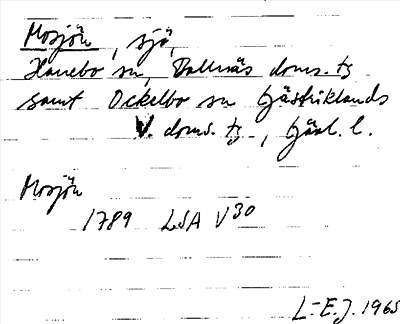 Mosjön, sjö,
Hanebo sn, Bollnäs doms. tg
samt Ockelbo sn Gästriklands
V. doms. tg, Gävl. l.
Mosjön
1789 LSA V30
L-E.J. 1965